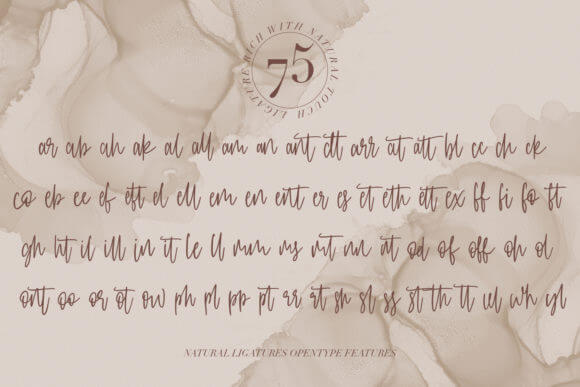 LIGATURE RICH WITH NATURAL TOUCH
75
ar ab ah ak al all am an ant att arr at att bl cc ch ck
co eb ee ef eft el ell em en ent er es et eth ett ex ff fi fo ft
gh ht il ill in it le ll mm ms nt nn ot od of off oh ol
ont oo or ot ow ph pl pp pt rr rt sh sl ss st th tt ul wh yl
NATURAL LIGATURES OPENTYPE FEATURES